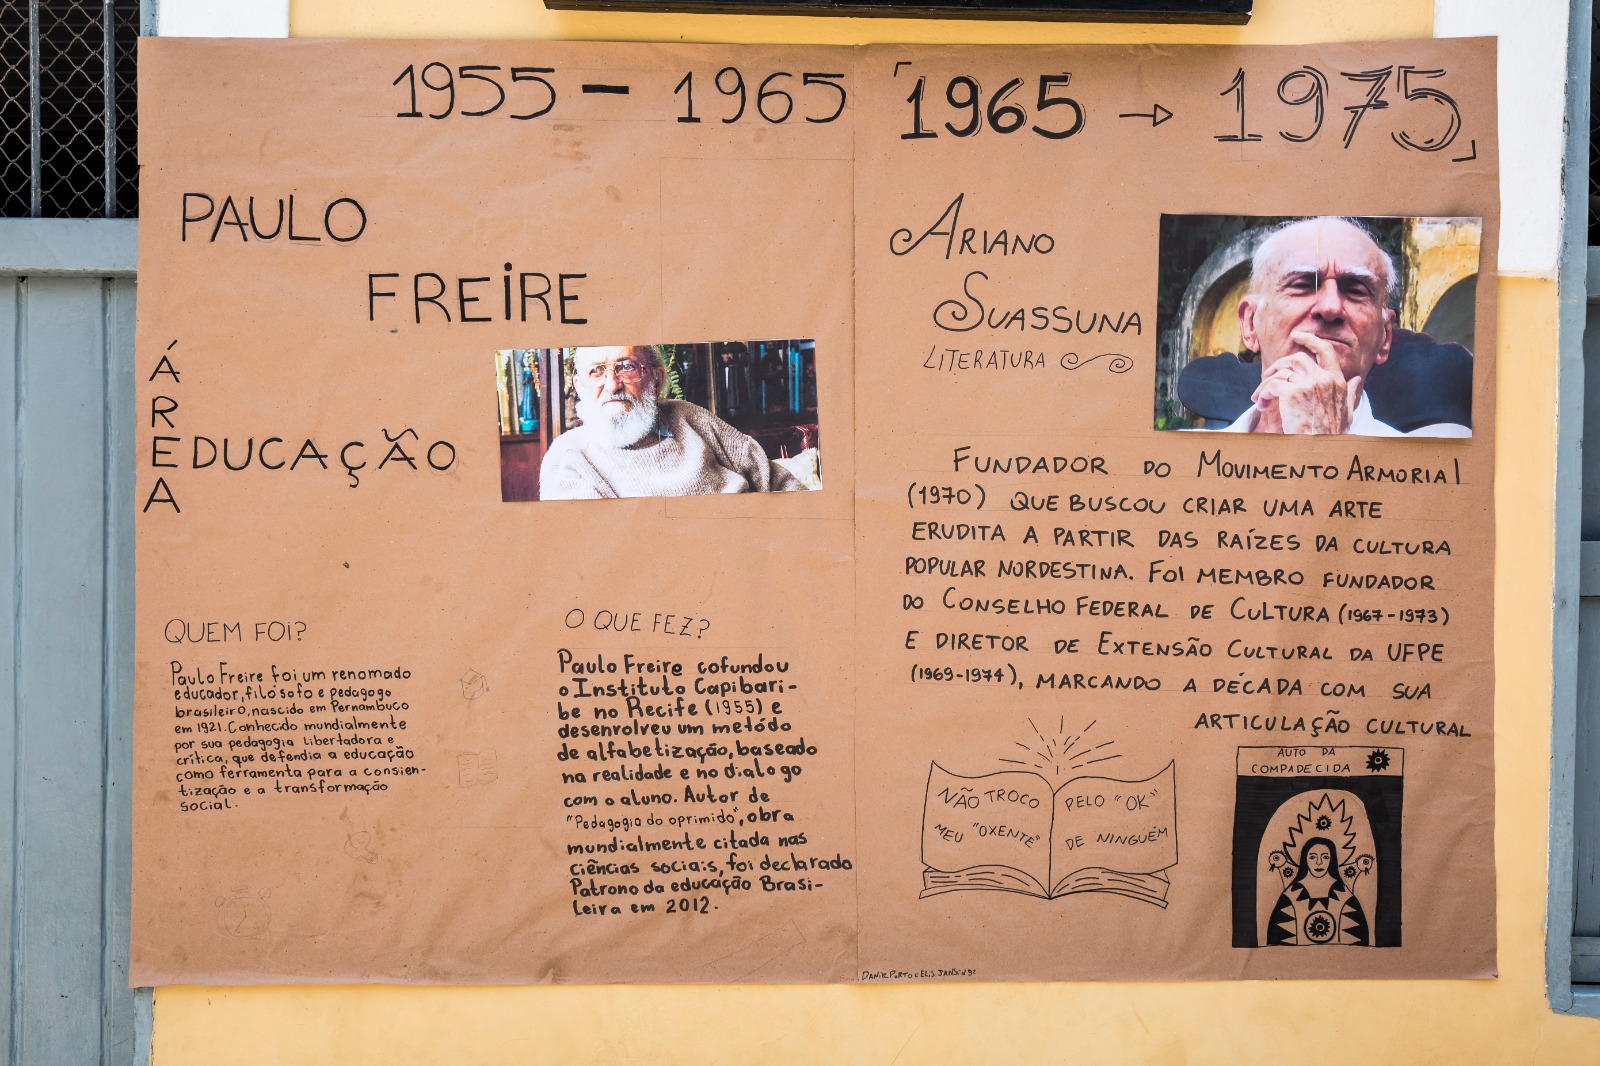 1955 - 1965
PAULO
FREIRE
ÁREA
EDUCAÇÃO
QUEM FOI?
Paulo Freire foi um renomado
educador, filósofo e pedagogo
brasileiro, nascido em Pernambuco
em 1921. Conhecido mundialmente
por sua pedagogia libertadora e
crítica, que defendia a educação
como ferramenta para a consien-
tização e a transformação
social.
O QUE FEZ?
Paulo Freire cofundou
o Instituto Capibari-
be no Recife (1955) e
desenvolveu um metódo
de alfabetização, baseado
na realidade e no dialogo
com o aluno. Autor de
"Pedagogia do oprimido", obra
mundialmente citada nas
ciências sociais, foi declarado
Patrono da educação Brasi-
leira em 2012.
「1965 → 1975」
ARIANO
SUASSUNA
LITERATURA
FUNDADOR DO MOVIMENTO ARMORIAL
(1970) QUE BUSCOU CRIAR UMA ARTE
ERUDITA A PARTIR DAS RAÍZES DA CULTURA
POPULAR NORDESTINA. FOI MEMBRO FUNDADOR
DO CONSELHO FEDERAL DE CULTURA (1967-1973)
E DIRETOR DE EXTENSÃO CULTURAL DA UFPE
(1969-1974), MARCANDO A DÉCADA COM SUA
ARTICULAÇÃO CULTURAL
NÃO TROCO
MEU "OXENTE"
PELO "OK"
DE NINGUÉM
AUTO DA
COMPADECIDA